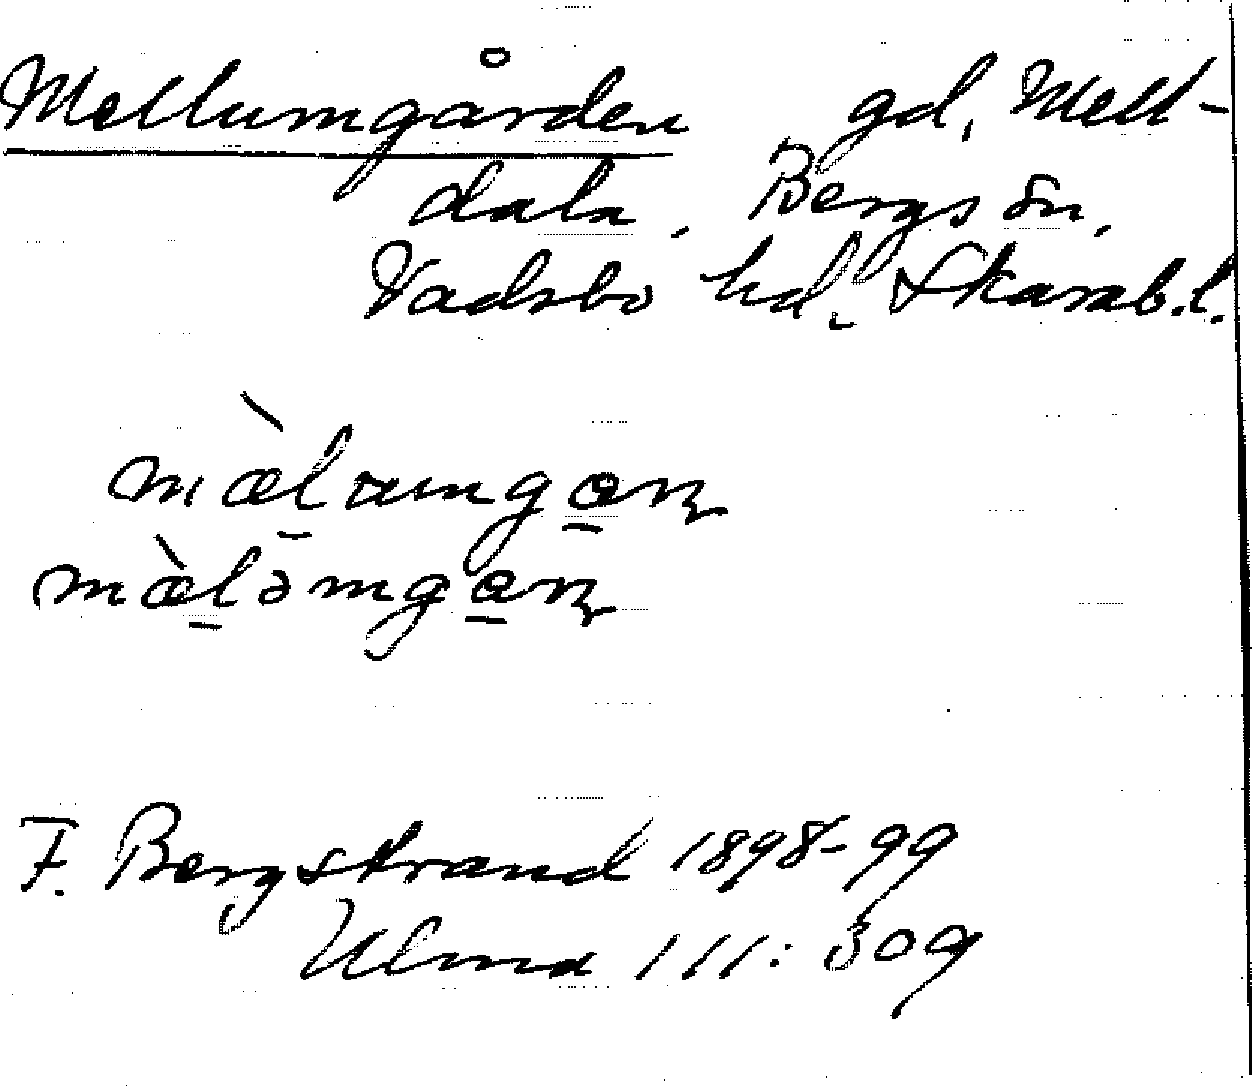 Mellumgården gd, Mell-
dala, Bergs sn,
Vadsbo hd, Skarab.l.
mæ̀lumgɷn
mæ̀ləmgɷn
F. Bergstrand 1898-99
Ulma 111: 309